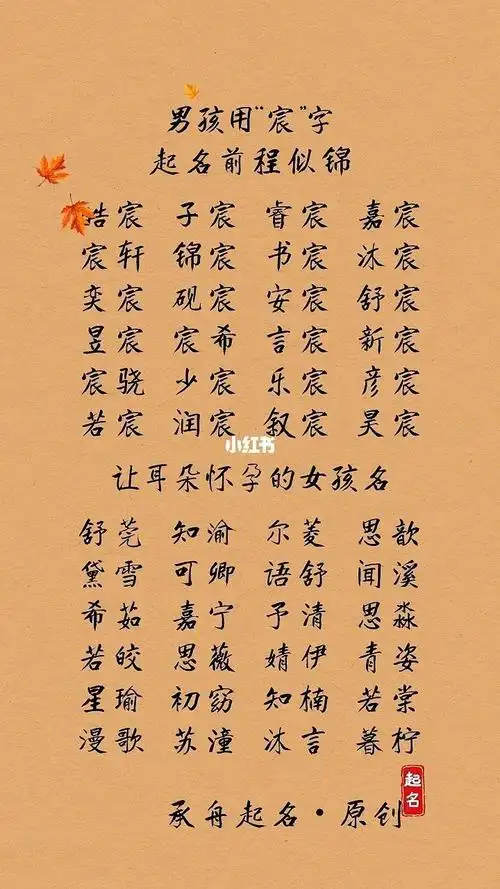 男孩用“宸”字
起名前程似锦
浩宸 子宸 睿宸 嘉宸
宸轩 锦宸 书宸 沐宸
奕宸 砚宸 安宸 舒宸
昱宸 宸希 言宸 新宸
宸骁 少宸 乐宸 彦宸
若宸 润宸 叙宸 昊宸
小红书
让耳朵怀孕的女孩名
舒莞 知渝 尔菱 思歆
黛雪 可卿 语舒 闻溪
希茹 嘉宁 予清 思淼
若皎 思薇 婧伊 青姿
星瑜 初窈 知楠 若棠
漫歌 苏潼 沐言 暮柠
起名
承舟起名·原创